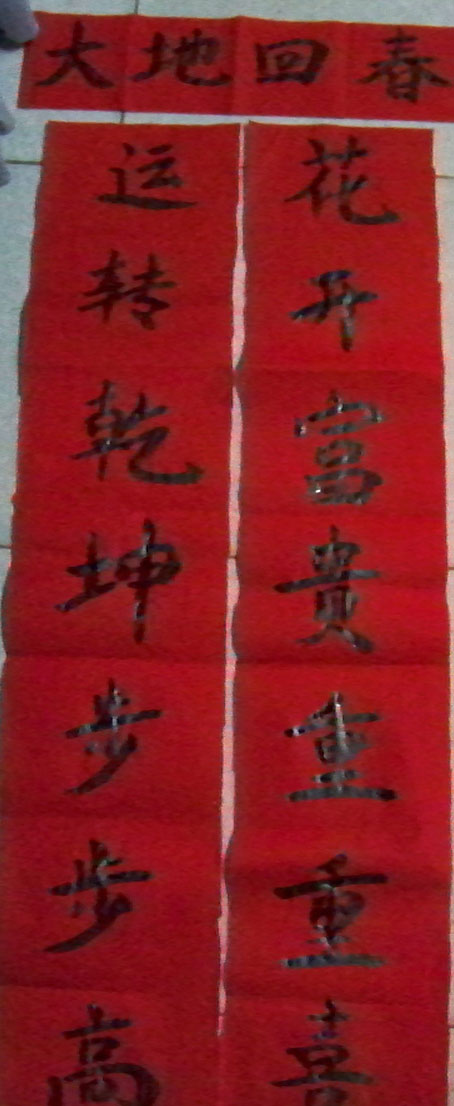 大地回春
花开富貴重重喜
运转乾坤步步高